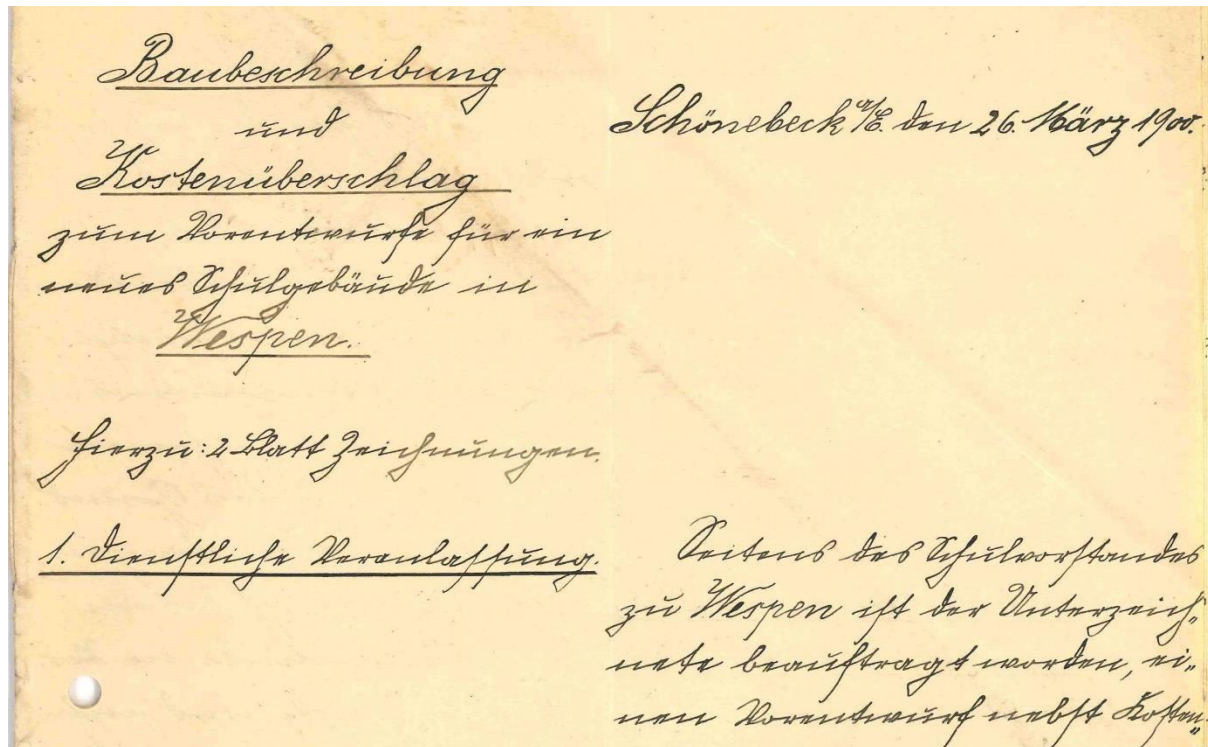 Baubeschreibung
und
Kostenüberschlag
zum Vorentwurfe für ein
neues Schulgebäude in
Wespen.
Hierzu: 2 Blatt Zeichnungen.
1. Dienstliche Veranlassung.
Schönebeck a/E. den 26. März 1900.
Seitens des Schulvorstandes
zu Wespen ist der Unterzeich„
nete beauftragt worden, ei„
nen Vorentwurf nebst Kosten„